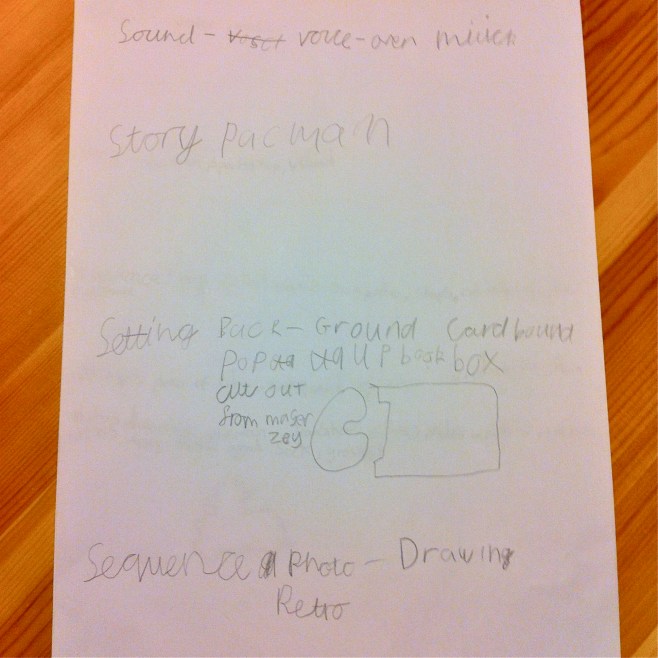 Sound - voice-oven miiick
Story pacman
Setting Back-Ground Cardbound
POP UP book box
cut out
from mager
zey
Sequence Photo - Drawing
Retro